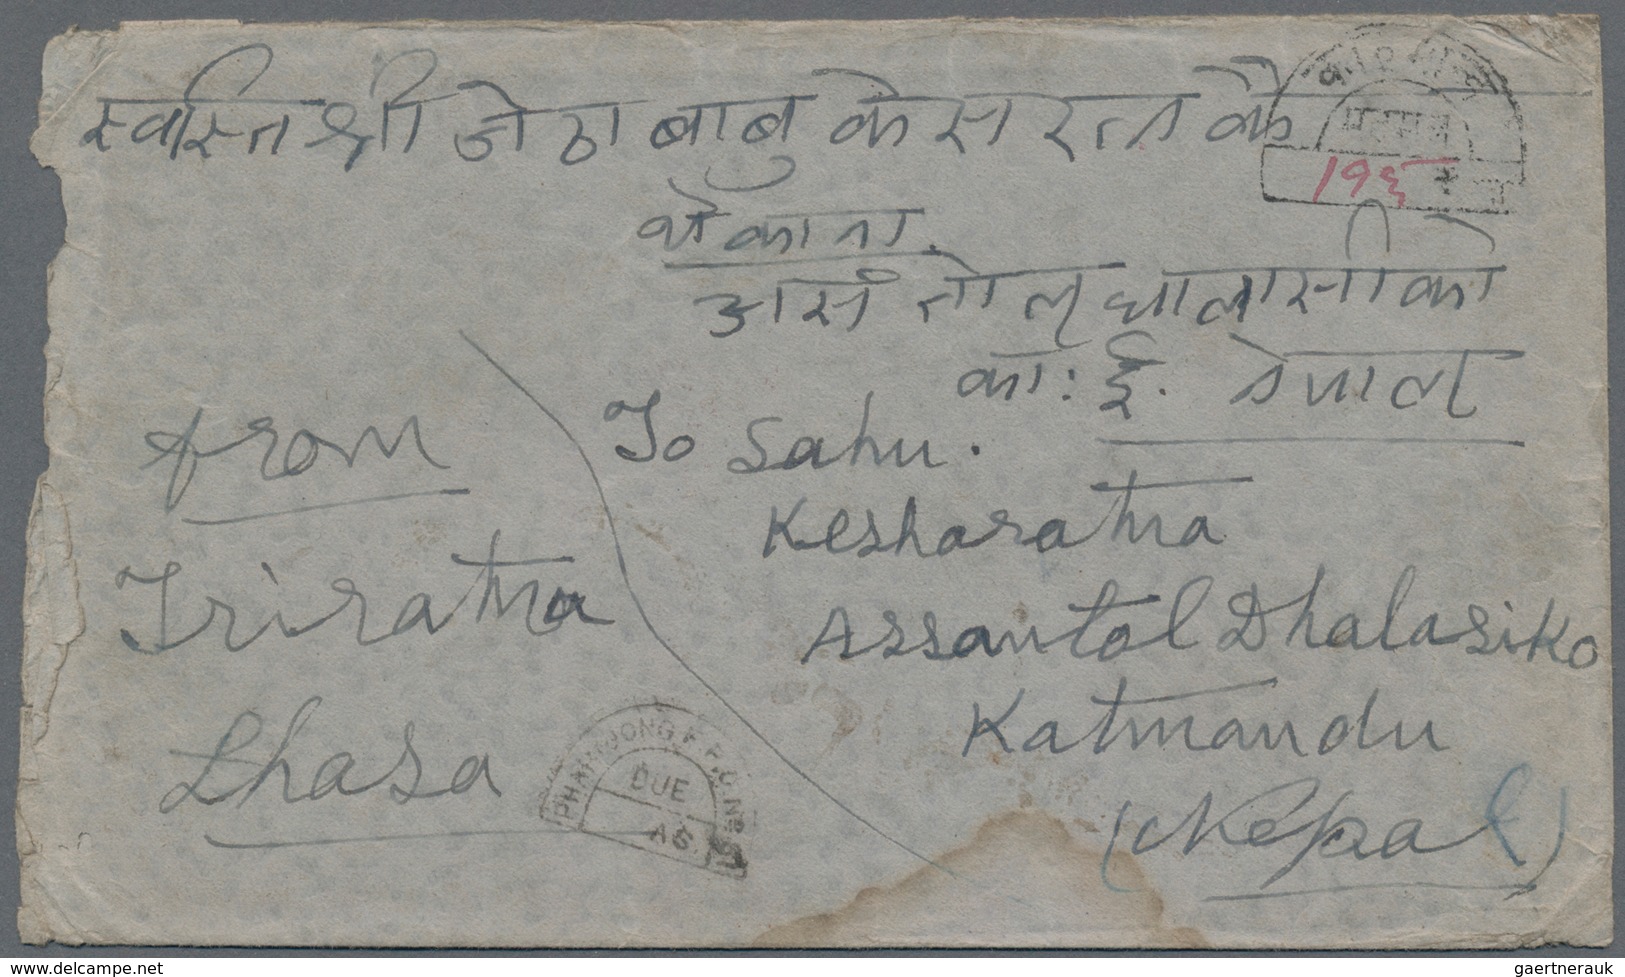 स्वस्ति श्री जेठा बाबु केसरत्न कै
थेकाना.
असं तोल् धालासीको
काः ई. नेपाल
From
Triratna
Lhasa
To Sahu.
Kesharatna
Assantol Dhalasiko
Katmandu
(Nepal)
१९६
PHARIJONG F.P.O. No
DUE
AS.
delcampe.net
gaertnerauk